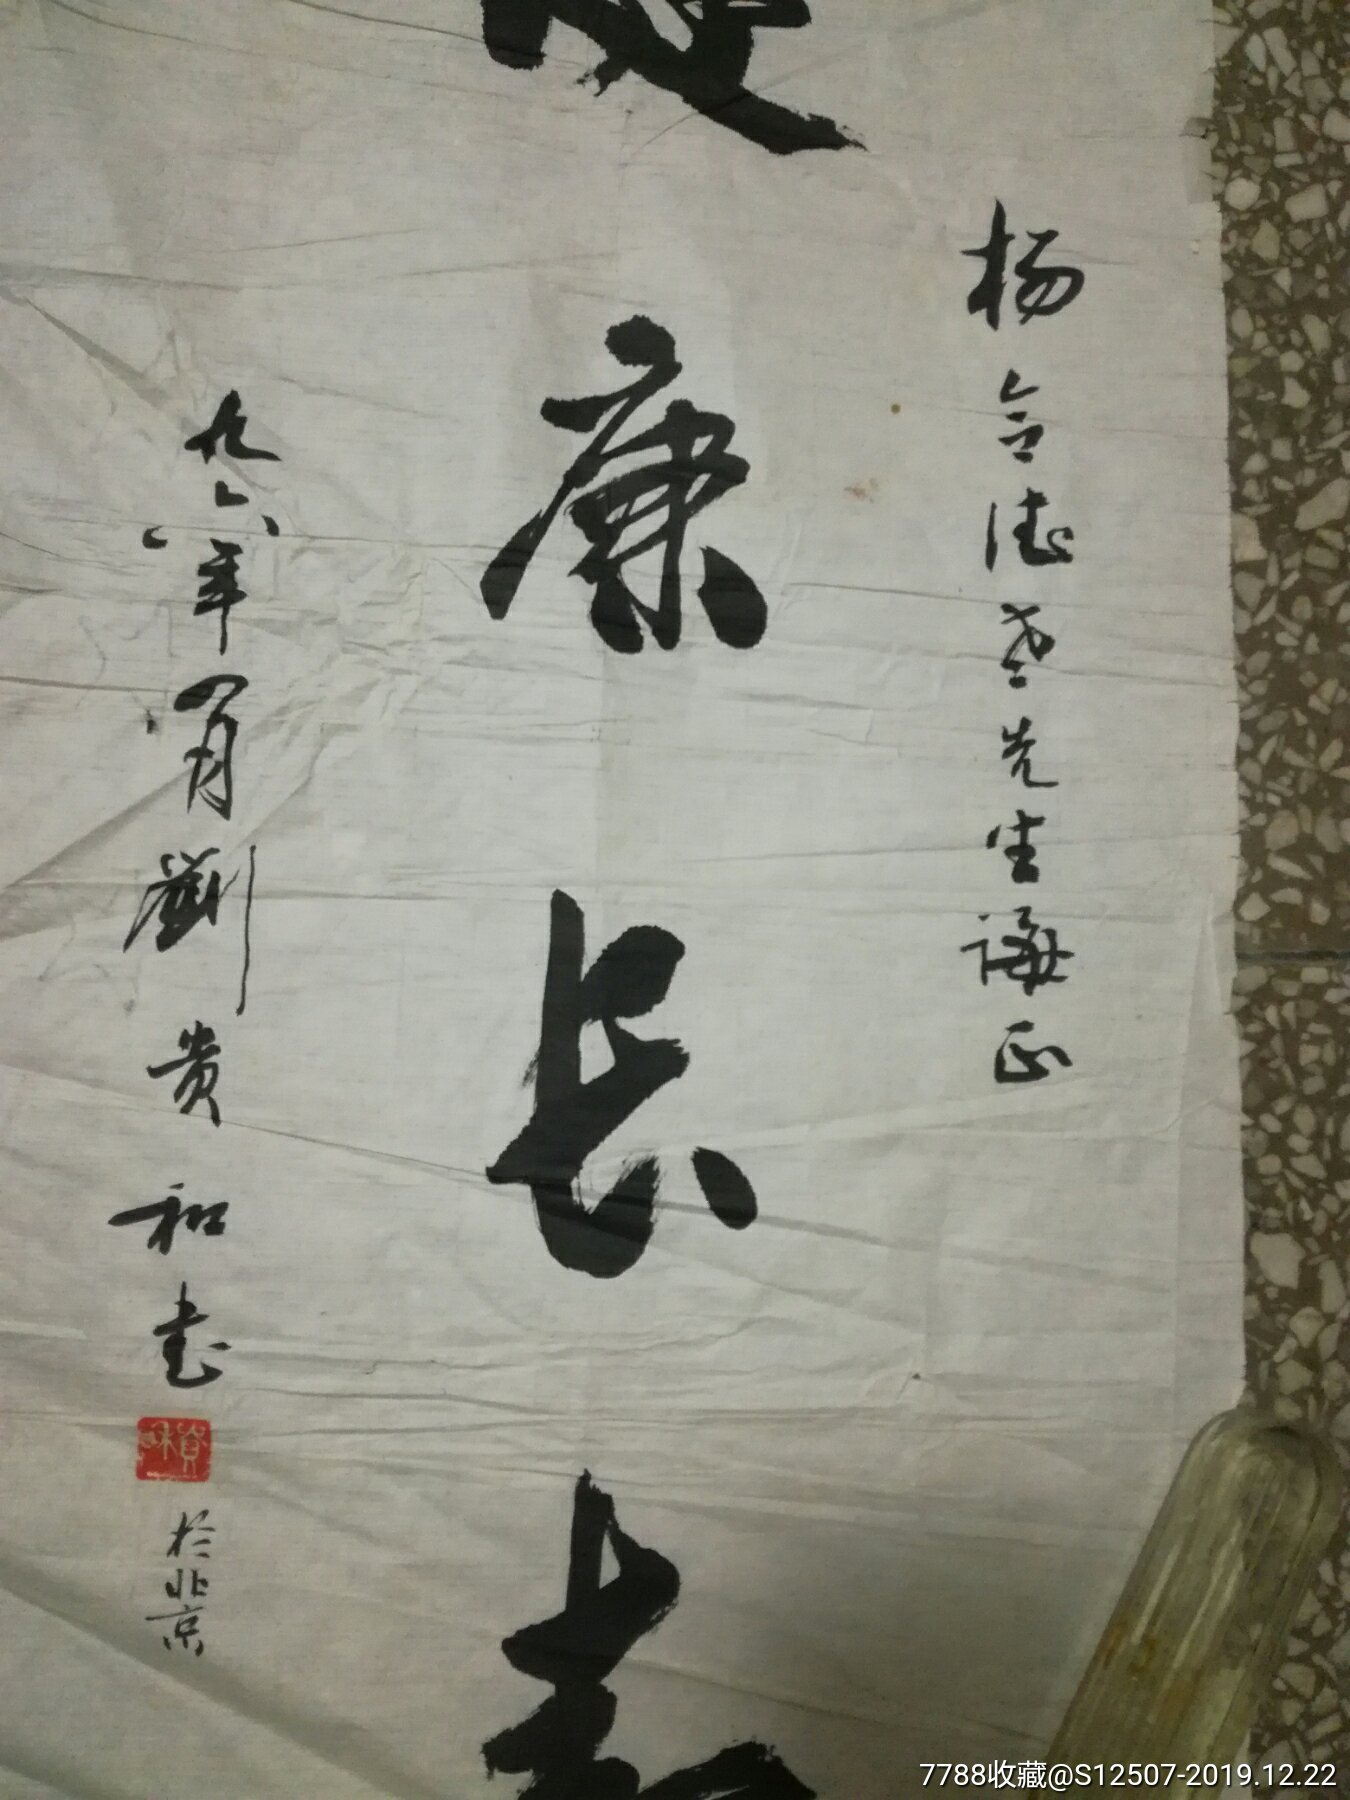 杨令德老先生诲正
康长寿
九六年八月劉贵和书
於北京
7788收藏@S12507-2019.12.22